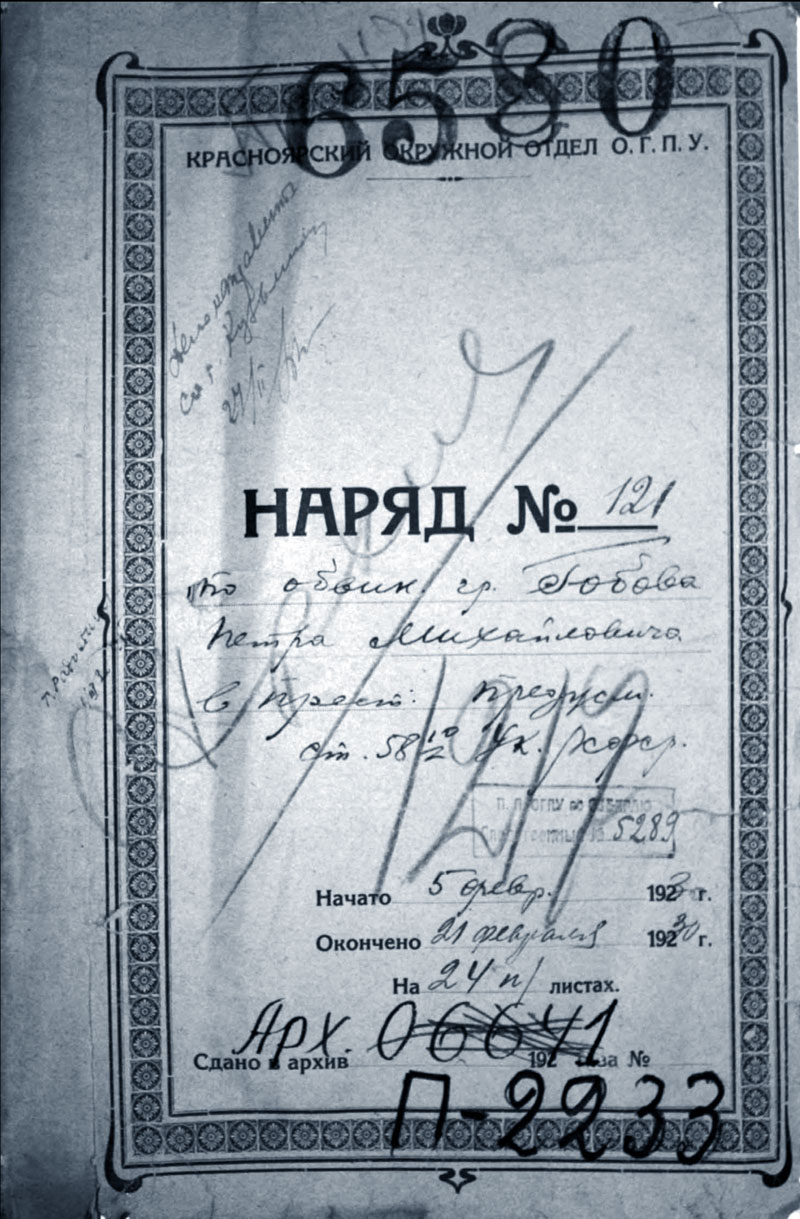 6580
КРАСНОЯРСКИЙ ОКРУЖНОЙ ОТДЕЛ О.Г.П.У.
27/II
НАРЯД № 121
по обвин. гр. Гобова
Петра Михайловича
в прест. предусм.
ст. 58 10/2 УК. РСФСР.
П. П. ОГПУ по СИБКРАЮ
5289
1217
Начато 5 февр. 1930 г.
Окончено 21 февраля 1930 г.
На 24 п/ листах.
Арх. 06641
Сдано в архив 192 за №
П-2233